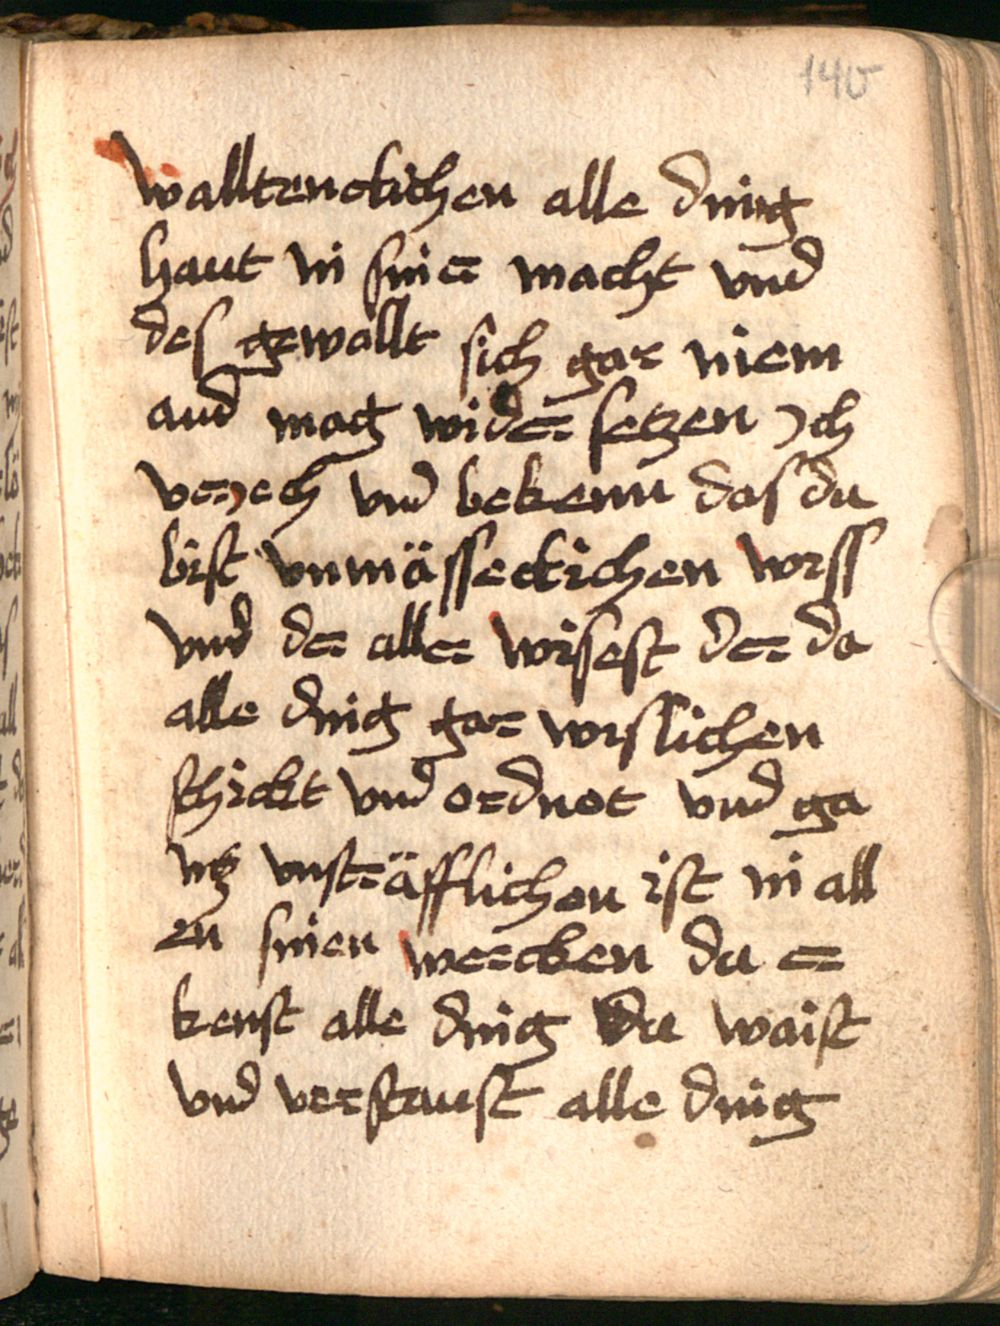 140
walltenckichen alle ding
haut in siner macht vnd
des gewallt sich gar niem
and mag wider setzen Ich
vergech vnd bekenn das du
bist vnmässeckichen wiss
vnd der aller wisest der da
alle ding gar wislichen
schickt vnd ordnot vnd ga
ntz vnsträfflichen ist in all
en sinen wercken du er
kenst alle ding du waist
vnd verstaust alle ding